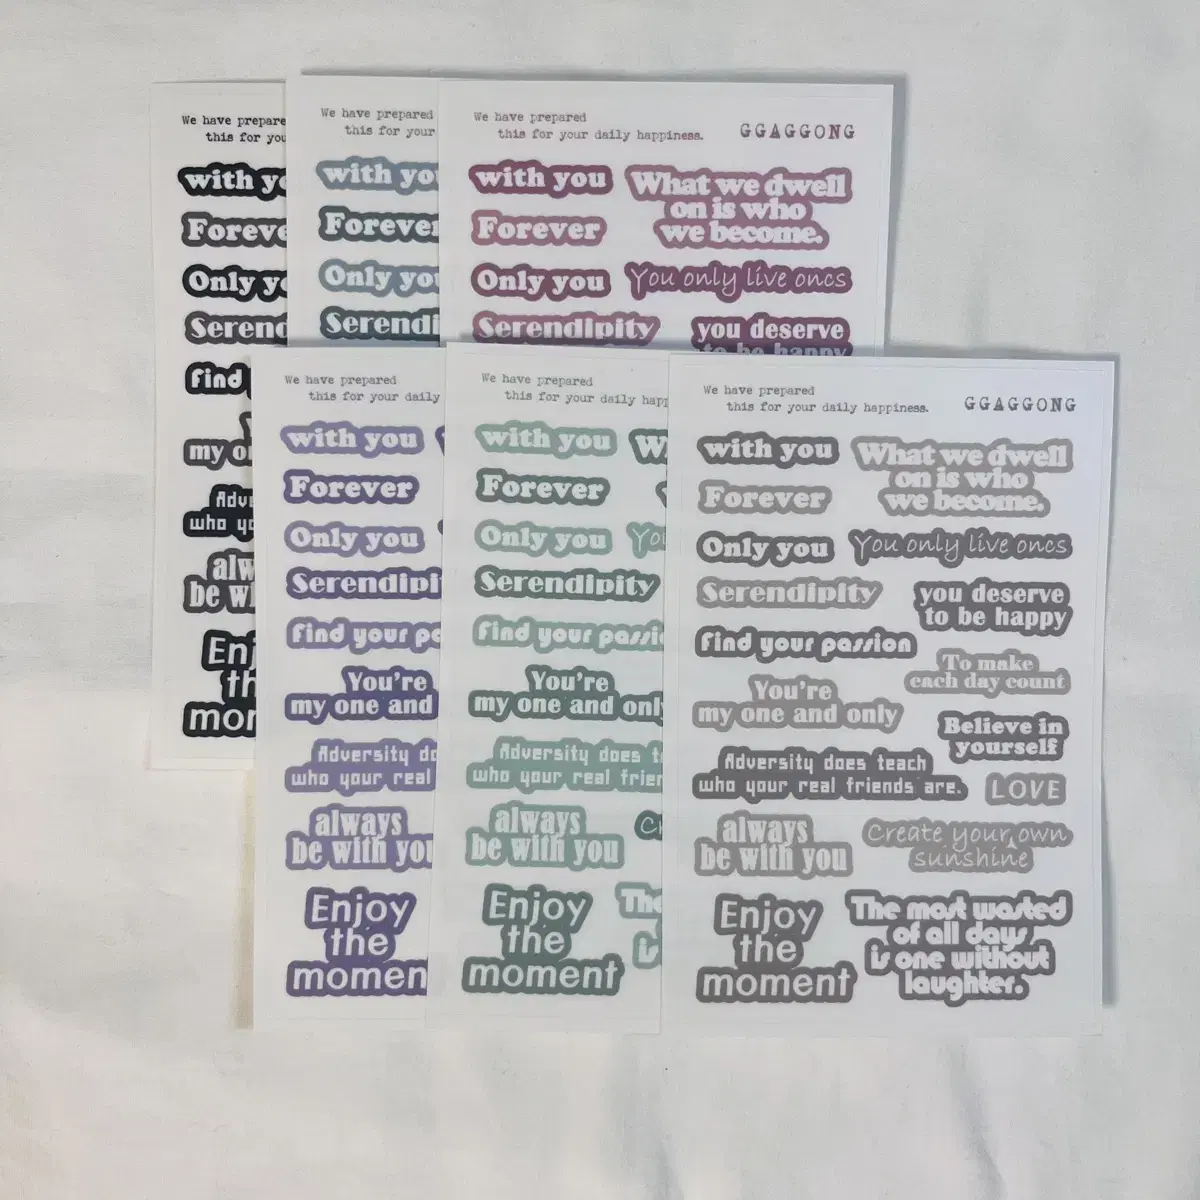 We have prepare
this for you
with yo
Foreve
Only yo
Serend
Find
my o
Adve
who yo
alw
be w
Enj
th
mor
We have prepared
this for your
with you
Forever
Only you
Serendi
We have prepared
this for your daily happiness.
GGAGGONG
with you
What we dwell
on is who
we become.
Forever
Only you
You only live oncs
Serendipity
you deserve
to be happy
We have prepared
this for your daily
with you
Forever
Only you
Serendipi
Find your pa
You're
my one and
Adversity do
who your real
always
be with you
Enjoy
the
momen
We have prepared
this for your daily happ
with you
W
Forever
Only you
You
Serendipity
Find your passi
You're
my one and only
Adversity does t
who your real frien
always
be with you
Cr
Enjoy
the
moment
The
is
We have prepared
this for your daily happiness.
GGAGGONG
with you
What we dwell
on is who
we become.
Forever
Only you
You only live oncs
Serendipity
you deserve
to be happy
Find your passion
To make
each day count
You're
my one and only
Believe in
yourself
Adversity does teach
who your real friends are.
LOVE
always
be with you
Create your own
sunshine
Enjoy
the
moment
The most wasted
of all days
is one without
laughter.